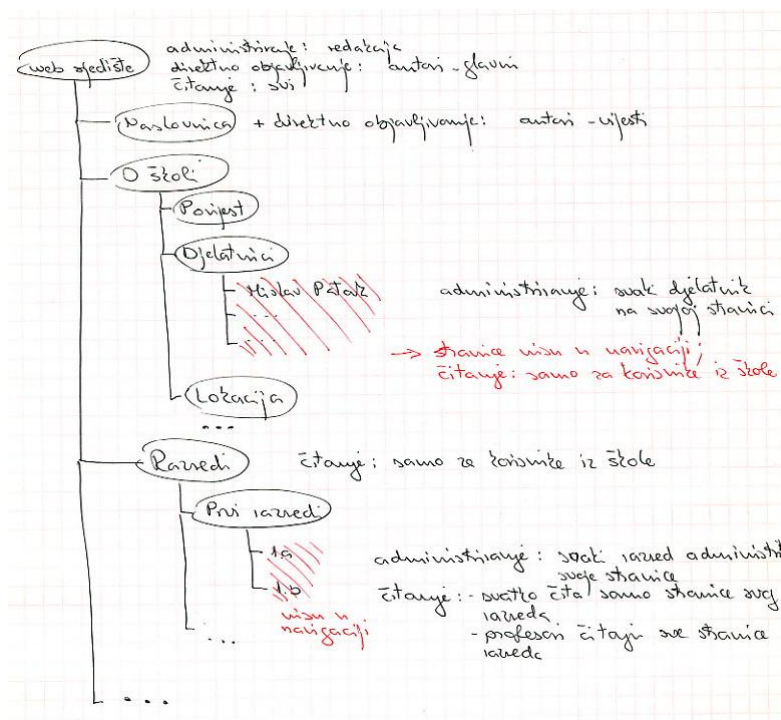 web sjedište
administriranje: redakcija
direktno objavljivanje: autori - glavni
čitanje: svi
Naslovnica + direktno objavljivanje: autori - vijesti
O školi
Povijest
Djelatnici
Mislav
...
...
administriranje: svaki djelatnik
na svojoj stranici
→ stranice nisu u navigaciji;
čitanje: samo za korisnike iz škole
Lokacija
...
Razredi čitanje: samo za korisnike iz škole
Prvi razredi
1.a
1.b
nisu u
navigaciji
...
administriranje: svaki razred administri
svoje stranice
čitanje: - svatko čita samo stranice svog
razreda
- profesori čitaju sve stranice
razreda
...